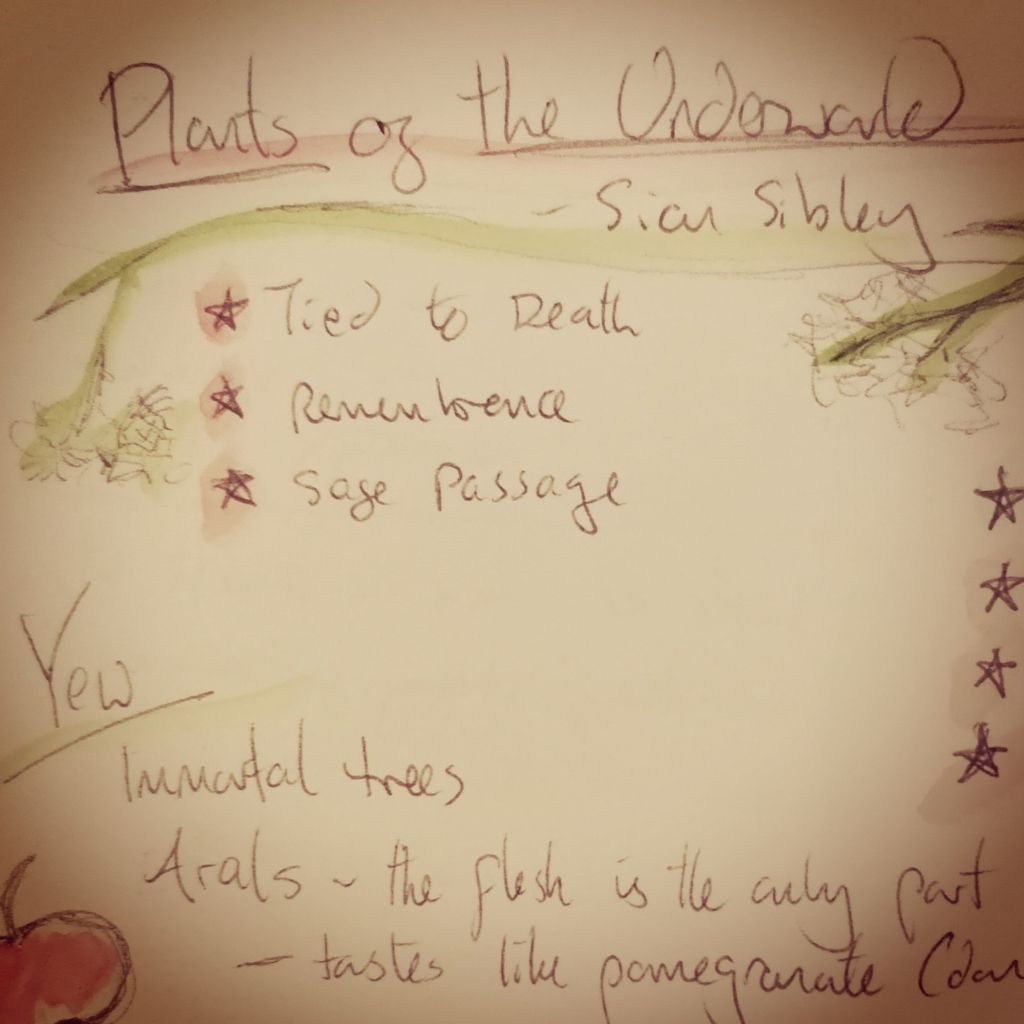 Plants of the Underworld
- Sian Sibley
Tied to Death
Remembrence
Sage Passage
Yew
Immortal trees
Arals - the flesh is the only part
- tastes like pomegranate (